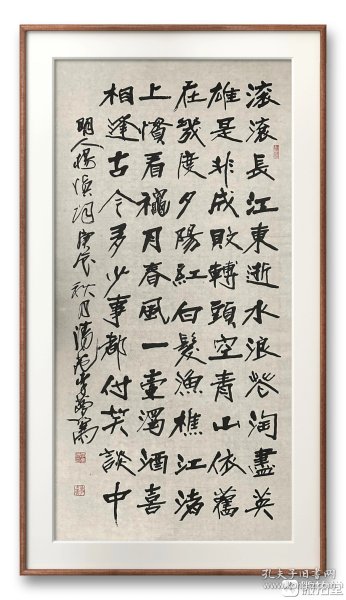 滚滚長江東逝水浪花淘盡英
雄是非成敗轉頭空青山依舊
在幾度夕陽紅白髮漁樵江渚
上慣看穐月春風一壺濁酒喜
相逢古今多少事都付笑談中
明人楊慎詞庚辰秋月
孔夫子旧书网
微拍堂